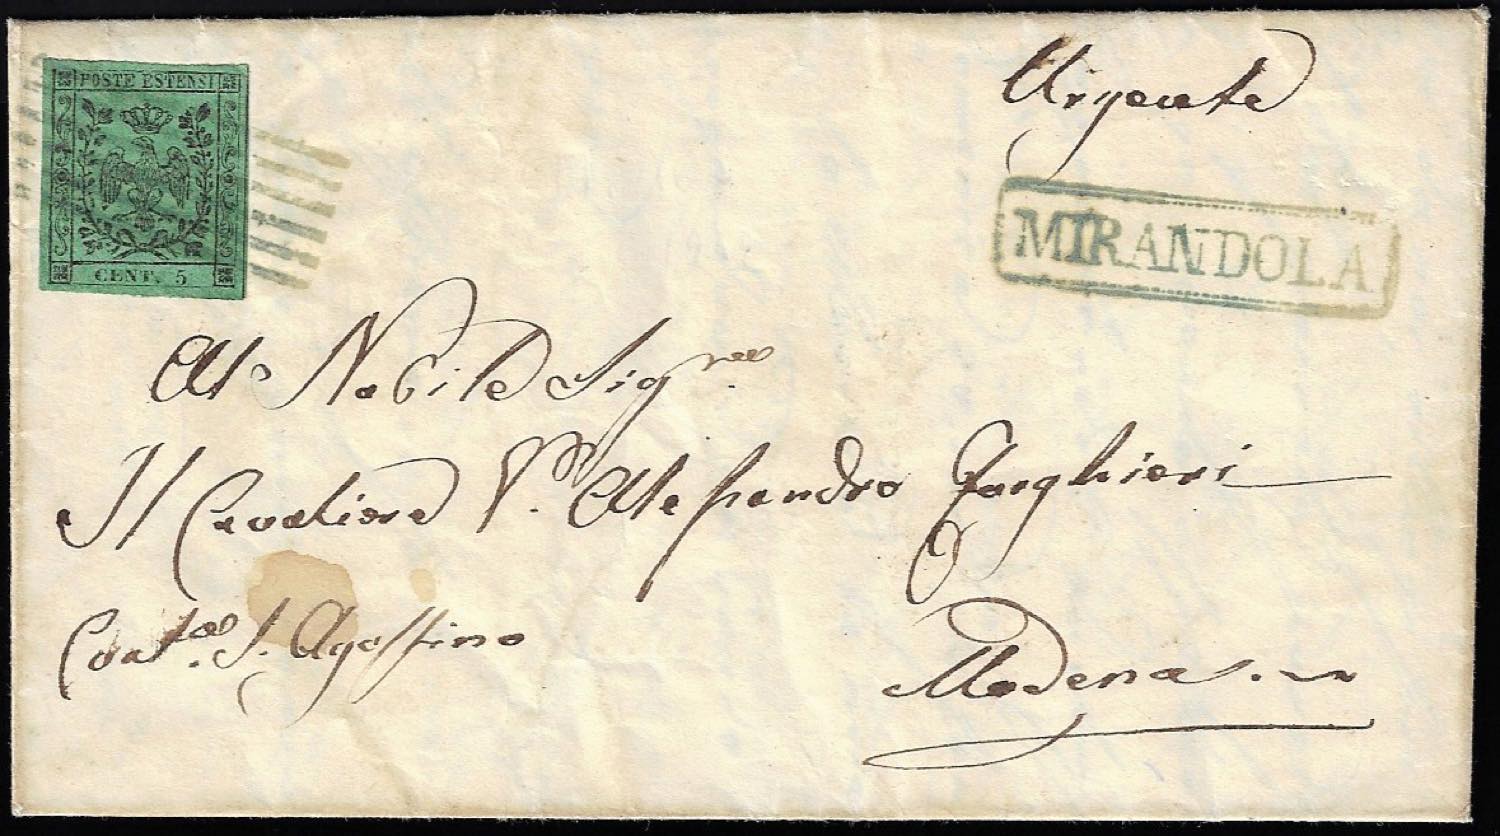 POSTE ESTENSI
CENT. 5
Urgente
MIRANDOLA
Al Nobile Sig.re
Il Cavaliere P. Alessandro Forghieri
Cont.a S. Agostino
Modena.